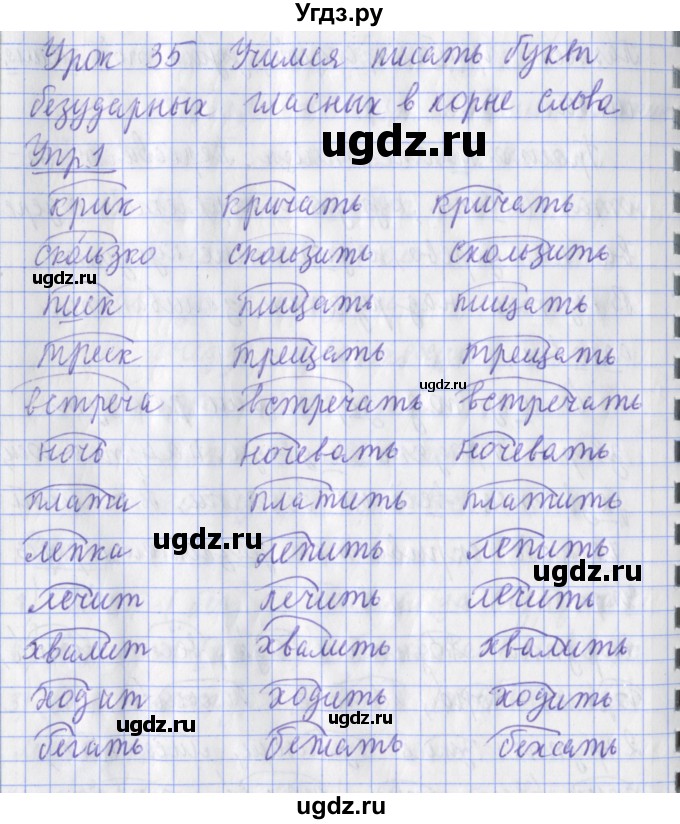 Угдз.ру
Урок 35 Учимся писать буквы
безударных гласных в корне слова
ugdz.ru
Упр.1
крик кричать кричать
скользко скользить скользить
ugdz.ru
писк пищать пищать
треск трещать трещать
ugdz.ru
встреча встречать встречать
ночь ночевать ночевать
плата платить платить
ugdz.ru
лепка лепить лепить
ugdz.ru
лечит лечить лечить
хвалит хвалить хвалить
ходит ходить ходить
ugdz.ru ugdz.ru
бегать бежать бежать
ugdz.ru